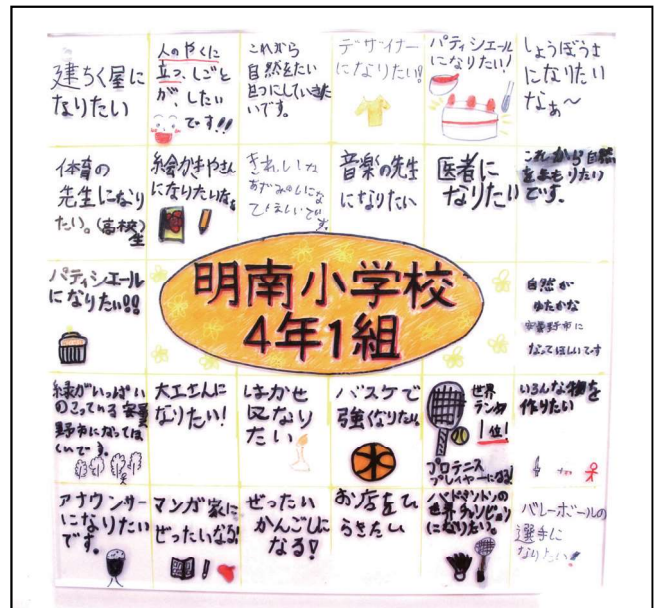 建ちく屋に
なりたい
人のやくに
立つ、しごと
が、したい
です!!
これから
自然をたい
せつにしていきた
いです。
デザイナー
になりたい!
パティシエール
になりたい!
しょうぼうし
になりたい
なぁ〜
体育の
先生になり
たい。(高校)
生
絵かきやさん
になりたいな。
きれいな
あずみのしにな
てほしいです。
音楽の先生
になりたい
医者に
なりたい
これから自然
をまもりたい
です。
パティシエール
になりたい!!
明南小学校
4年1組
自然が
ゆたかな
安曇野市に
なってほしいです
緑がいっぱい
のこっている安曇
野市になってほ
しいです。
大工さんに
なりたい!
はかせ
になり
たい
バスケで
強くなりたい
世界
ランク
1位!
プロテニス
プレイヤーになる!
いろんな物を
作りたい
アナウンサー
になりたい
です。
マンガ家に
ぜったいなる!
ぜったい
かんごしに
なる!
お店をひ
らきたい
バドミントンの
世界チャンピョン
になりたい。
バレーボールの
選手に
なりたい!